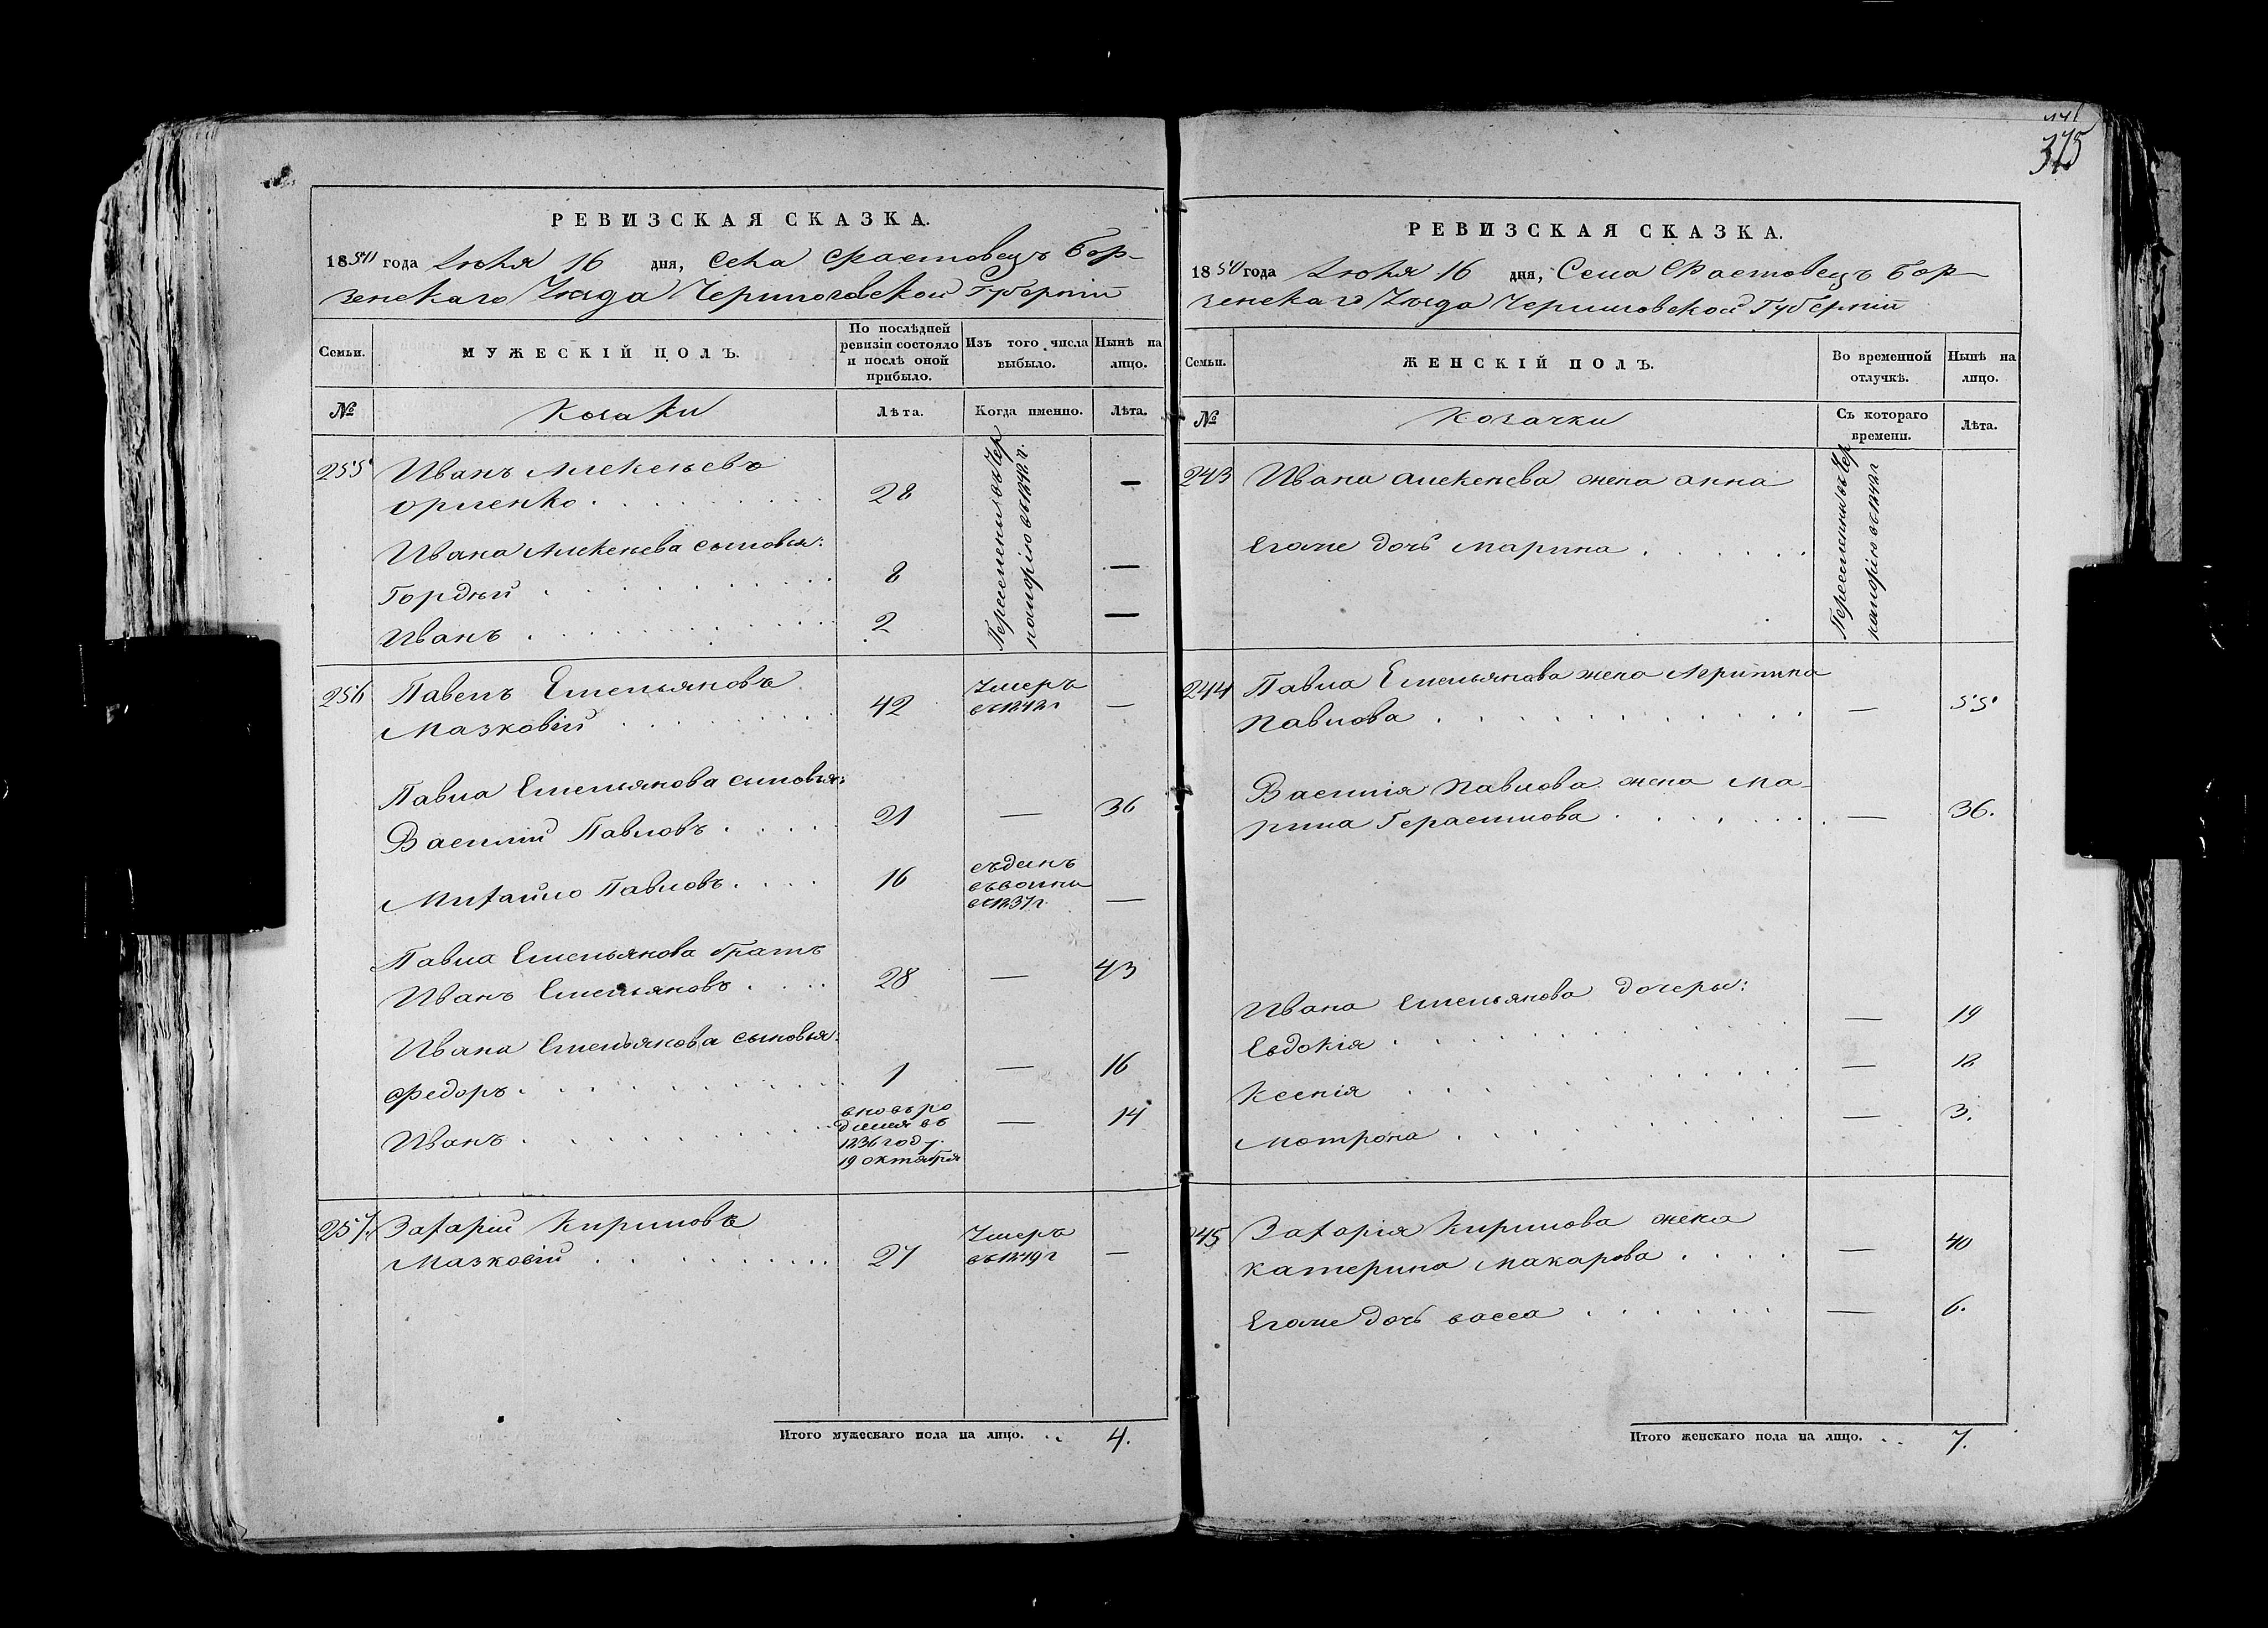 375
РЕВИЗСКАЯ СКАЗКА.
1850 года Июля 16 дня, Села Фастовецъ Бор-
зенскаго Уѣзда Черниговской Губерніи
Семьи.
МУЖЕСКІЙ ПОЛЪ.
По послѣдней
ревизіи состояло
и послѣ оной
прибыло.
Изъ того числа
выбыло.
Нынѣ на
лицо.
№
Козаки
Лѣта.
Когда именно.
Лѣта.
255
Иванъ Алексѣевъ
28
—
Ивана Алексѣева сыновья:
Гордѣй
8
—
Иванъ
2
—
Переселены въ Чер
номорію въ 1848 г.
256
Павелъ Емельяновъ
Мазковій
42
Умеръ
въ 1848 г
—
Павла Емельянова сыновья:
Василій Павловъ
21
—
36
Михайло Павловъ
16
съданъ
въ 1837 г.
—
Павла Емельянова братъ
Иванъ Емельяновъ
28
—
43
Ивана Емельянова сыновья:
Федоръ
1
—
16
Иванъ
вновь ро
дился въ
1836 году
19 октября
—
14
257
Захарій Кириловъ
Мазковій
27
Умеръ
въ 1849 г
—
Итого мужескаго пола на лицо. 4.
РЕВИЗСКАЯ СКАЗКА.
1850 года Июля 16 дня, Села Фастовецъ Бор-
зенскаго Уѣзда Черниговской Губерніи
Семьи.
ЖЕНСКІЙ ПОЛЪ.
Во временной
отлучкѣ.
Нынѣ на
лицо.
№
Козачки
Съ котораго
времени.
Лѣта.
243
Ивана Алексѣева жена Анна
Егоже дочь Марина
Переселены въ Чер
номорію въ 1848 г
244
Павла Емельянова жена Агрипина
Павлова
—
55
Василія Павлова жена Ма-
рина Герасимова
—
36.
Ивана Емельянова дочери:
Евдокія
—
19
Ксенія
—
18
Мотрона
—
3.
245
Захарія Кирилова жена
Катерина Макарова
—
40
Егоже дочь Васса
—
6.
Итого женскаго пола на лицо. 7.